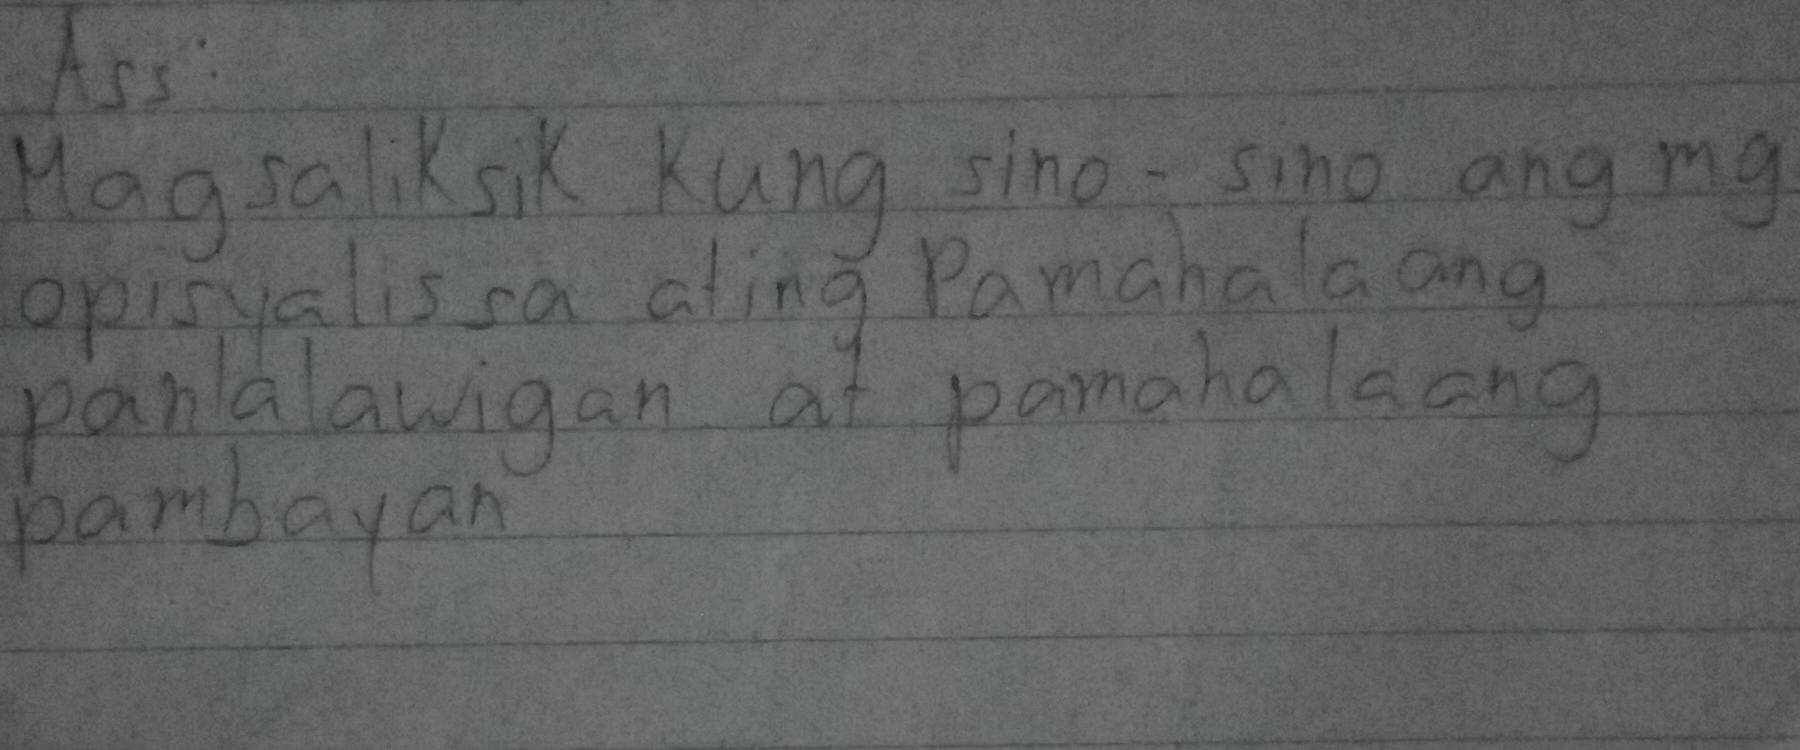 Ass:
Magsaliksik kung sino-sino ang mg
opisyalis sa ating Pamahalaang
panlalawigan at pamahalaang
pambayan